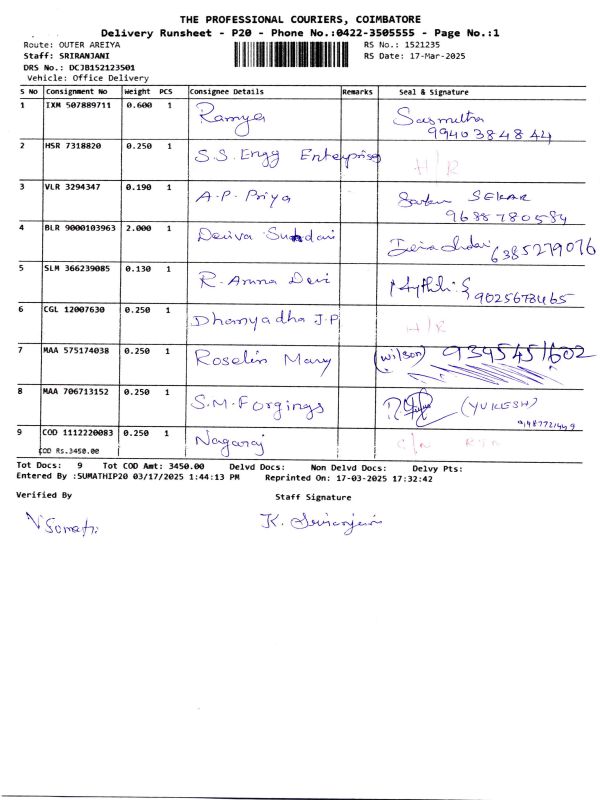 THE PROFESSIONAL COURIERS, COIMBATORE
Delivery Runsheet - P20 - Phone No.:0422-3505555 - Page No.:1
Route: OUTER AREIYA RS No.: 1521235
Staff: SRIRANJANI RS Date: 17-Mar-2025
DRS No.: DCJB152123501
Vehicle: Office Delivery
S No Consignment No Weight PCS Consignee Details Remarks Seal & Signature
1 IXM 507889711 0.600 1 Ramya Sasmitha
9940384844
2 HSR 7318820 0.250 1 S.S. Engg Enterprises H/R
3 VLR 3294347 0.190 1 A.P. Priya SEKAR
9688780584
4 BLR 9000103963 2.000 1 Deiva Sundari 6385279076
5 SLM 366239085 0.130 1 R. Amma Devi
9025678465
6 CGL 12007630 0.250 1 Dhanyadha J.P H/R
7 MAA 575174038 0.250 1 Roselin Mary (Wilson) 9395451602
8 MAA 706713152 0.250 1 S.M. Forgings (YUKESH)
9 COD 1112220083 0.250 1 Nagaraj
COD Rs.3450.00
Tot Docs: 9 Tot COD Amt: 3450.00 Delvd Docs: Non Delvd Docs: Delvy Pts:
Entered By :SUMATHIP20 03/17/2025 1:44:13 PM Reprinted On: 17-03-2025 17:32:42
Verified By Staff Signature
V Sumathi K. Sriranjani